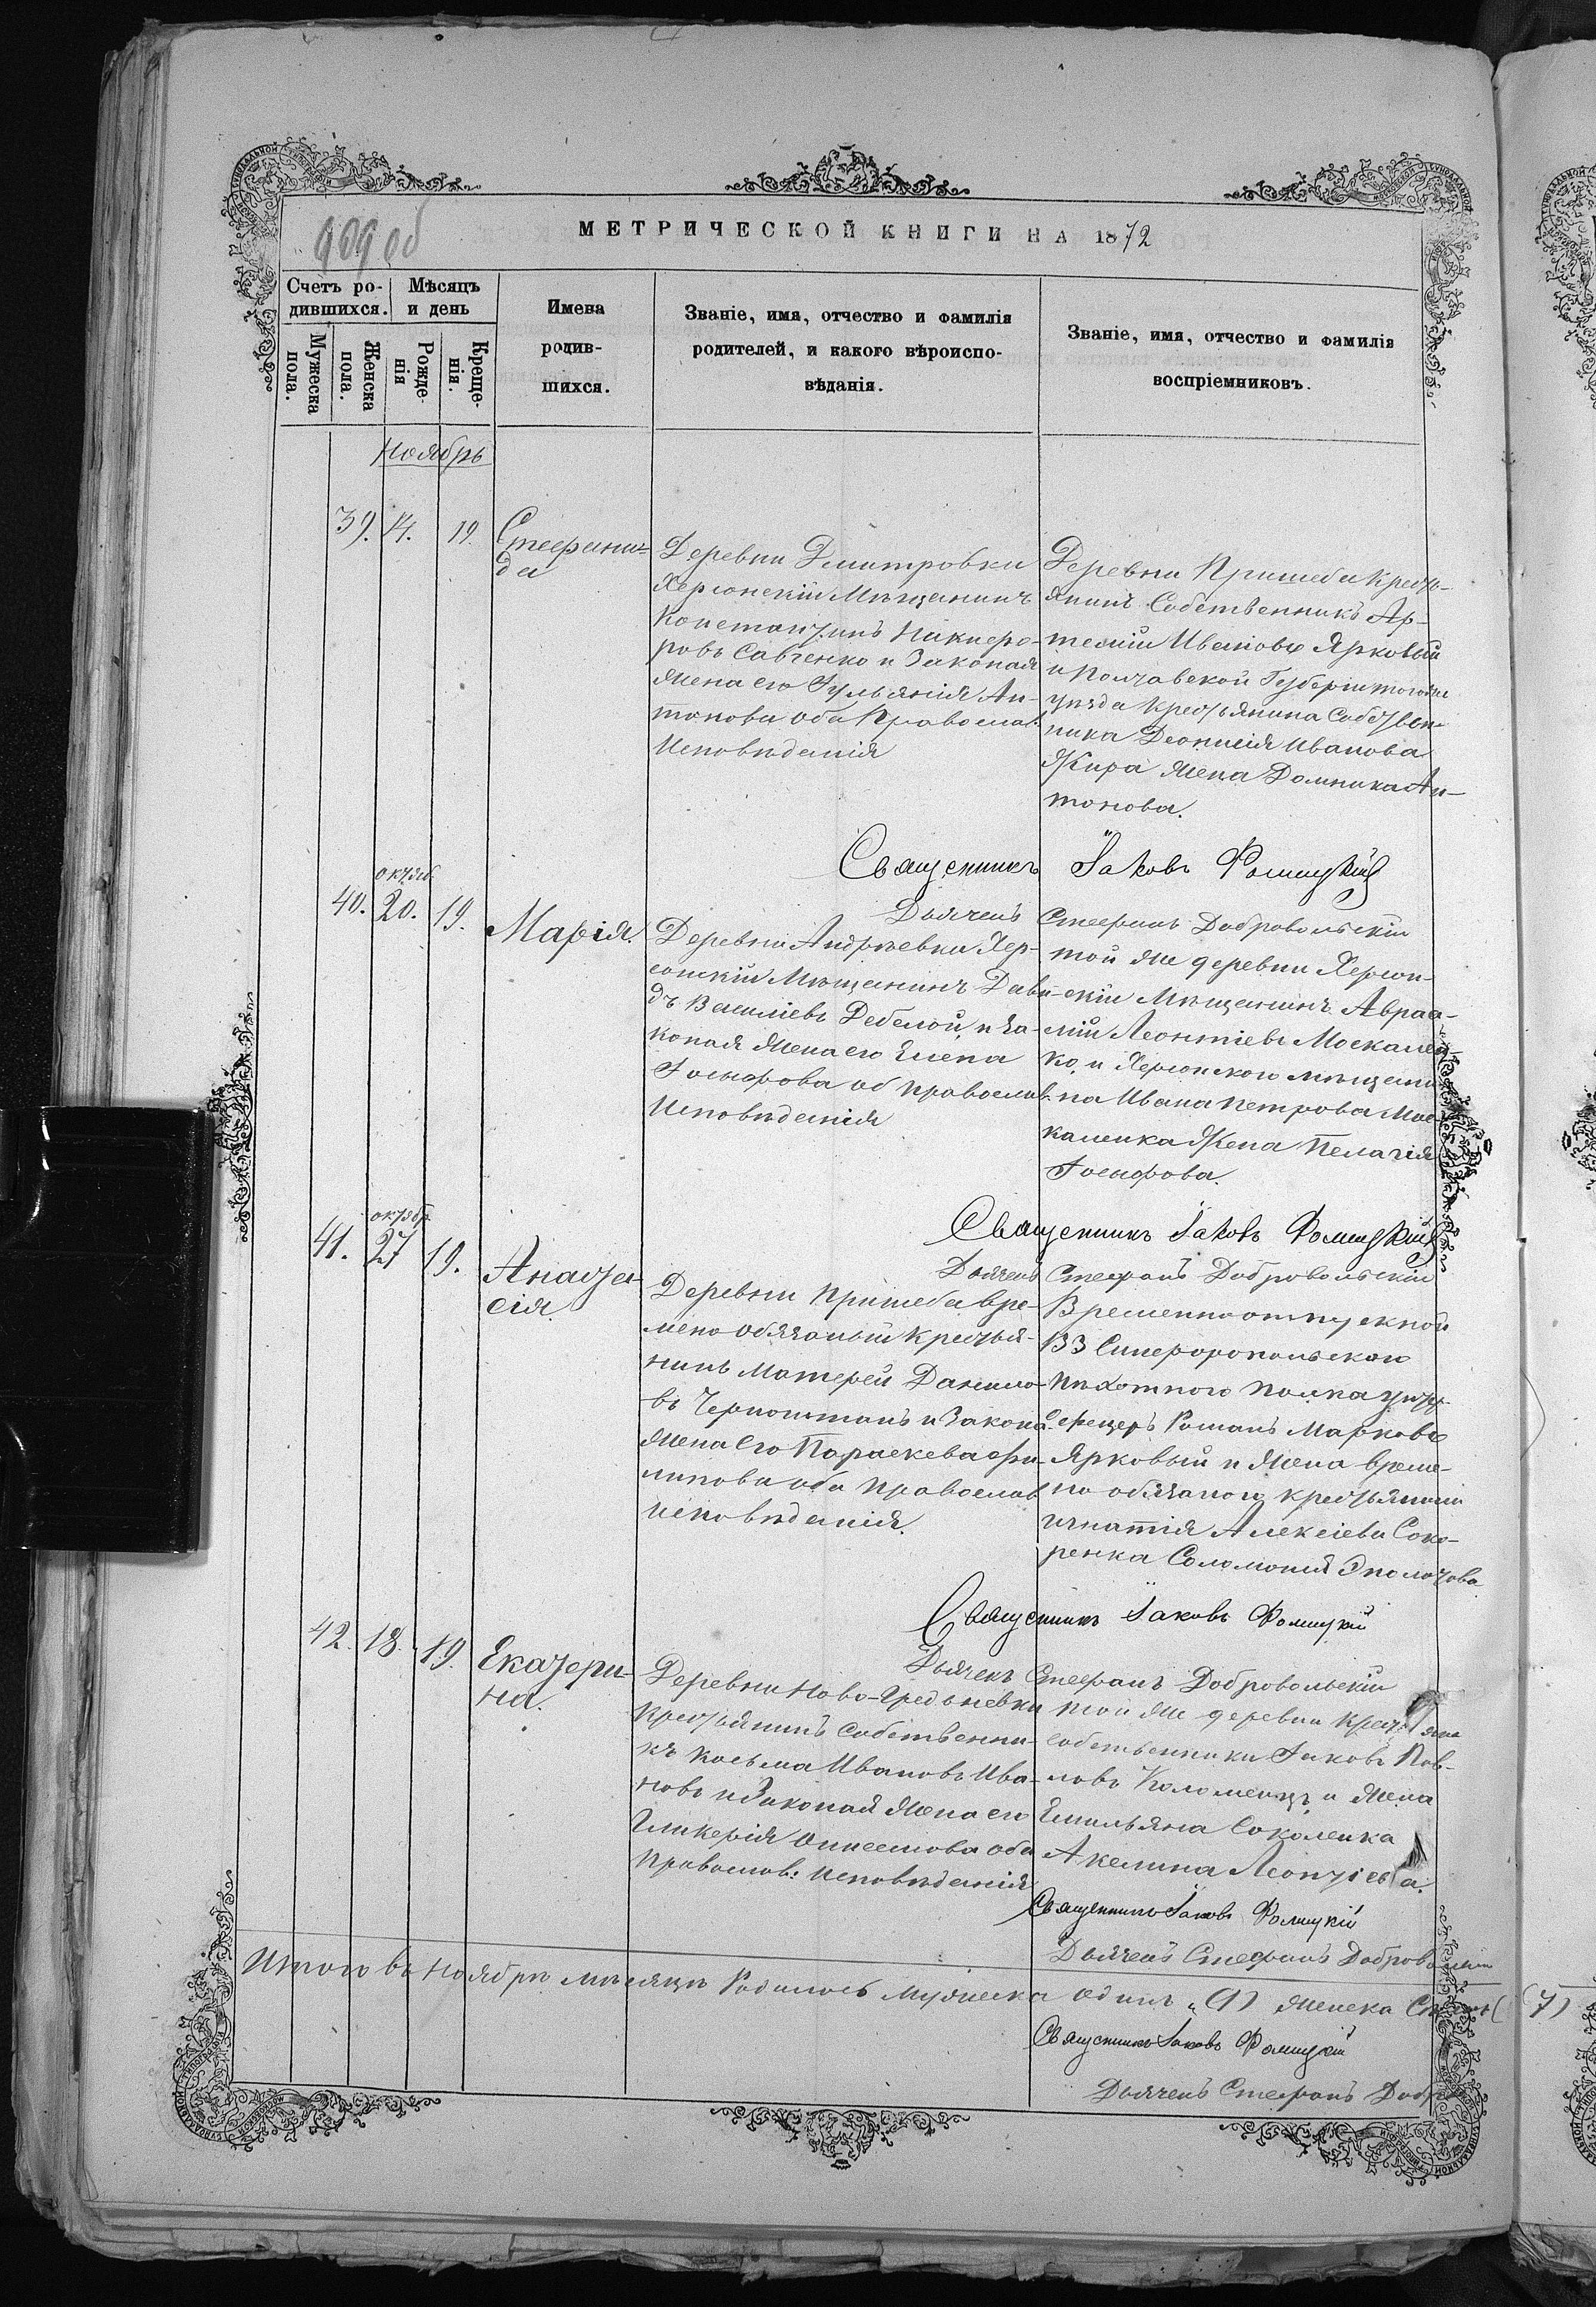 909 об
МЕТРИЧЕСКОЙ КНИГИ НА 1872
Счетъ ро-
дившихся.
Мѣсяцъ
и день
Мужеска
пола.
Женска
пола.
Рожде-
нія
Креще-
нія.
Имена
родив-
шихся.
Званіе, имя, отчество и фамилія
родителей, и какого вѣроиспо-
вѣданія.
Званіе, имя, отчество и фамилія
воспріемниковъ.
Ноябрь
39. 14. 19.
Стефани-
да
Деревни Дмитровки
Херсонскій Мѣщанинъ
Константинъ Никифо-
ровъ Савченко и Законая
жена его Іульянія Ан-
тонова оба Православ:
Исповѣданія
Деревни Пришеба Кресть-
янинъ Собственникъ Ар-
темій Ивановъ Ярковый
и Полтавской Губерніи тогоже
уѣзда Крестьянина Собствен-
ника Деонисія Иванова
Жира жена Домника Ан-
тонова.
Священникъ Іаковъ Фомицкій
Дьячекъ Стефанъ Добровольскій
40. октяб. 20. 19.
Марія.
Деревни Андрѣевки Хер-
сонскій Мѣщанинъ Дави-
дъ Василіевъ Дебелой, и За-
коная жена его Елена
Іосифова об православ.
Исповѣданія
той же деревни Херсон-
скій Мѣщанинъ Авраа-
мій Леонтіевъ Москален-
ко, и Херсонского мѣщани-
на Ивана Петрова Мос-
каленка Жена Пелагія
Іосифова.
Священникъ Іаковъ Фомицкій
Дьячекъ Стефанъ Добровольскій
41. октябр. 27 19.
Анаста-
сія
Деревни Пришеба вре-
мено обязаный Крестья-
нинъ Матфей Данило-
въ Черноштанъ и Закона
жена Его Параскева Фи-
липова оба православ
исповѣданія.
Временноотпускной
133 Симферопольскаго
пѣхотного полка унтер-
офецеръ Романъ Марковъ
Ярковый и жена време-
но обязаного крестьянина
игнатія Алексіева Соко-
ренка Соломонія
Священникъ Іаковъ Фомицкій
Дьячекъ Стефанъ Добровольскій
42. 18. 19.
Екатери-
на.
Деревни Ново-Гредьневки
Крестьянинъ Собственни-
къ Косьма Ивановъ Ива-
новъ и Законая жена его
Гликерія Онисимова оба
Православ: исповѣданія
той же деревни Крестьяне
собственники Іаковъ Пав-
ловъ Коломеецъ, и жена
Емильяна Соколенка
Акелина Леонтіева.
Священникъ Іаковъ Фомицкій
Дьячекъ Стефанъ Добровольскій
Итого въ Ноябрѣ мѣсяцѣ Родилось мужеска одинъ (1) женска Семь (7)
Священникъ Іаковъ Фомицкій
Дьячекъ Стефанъ Добр